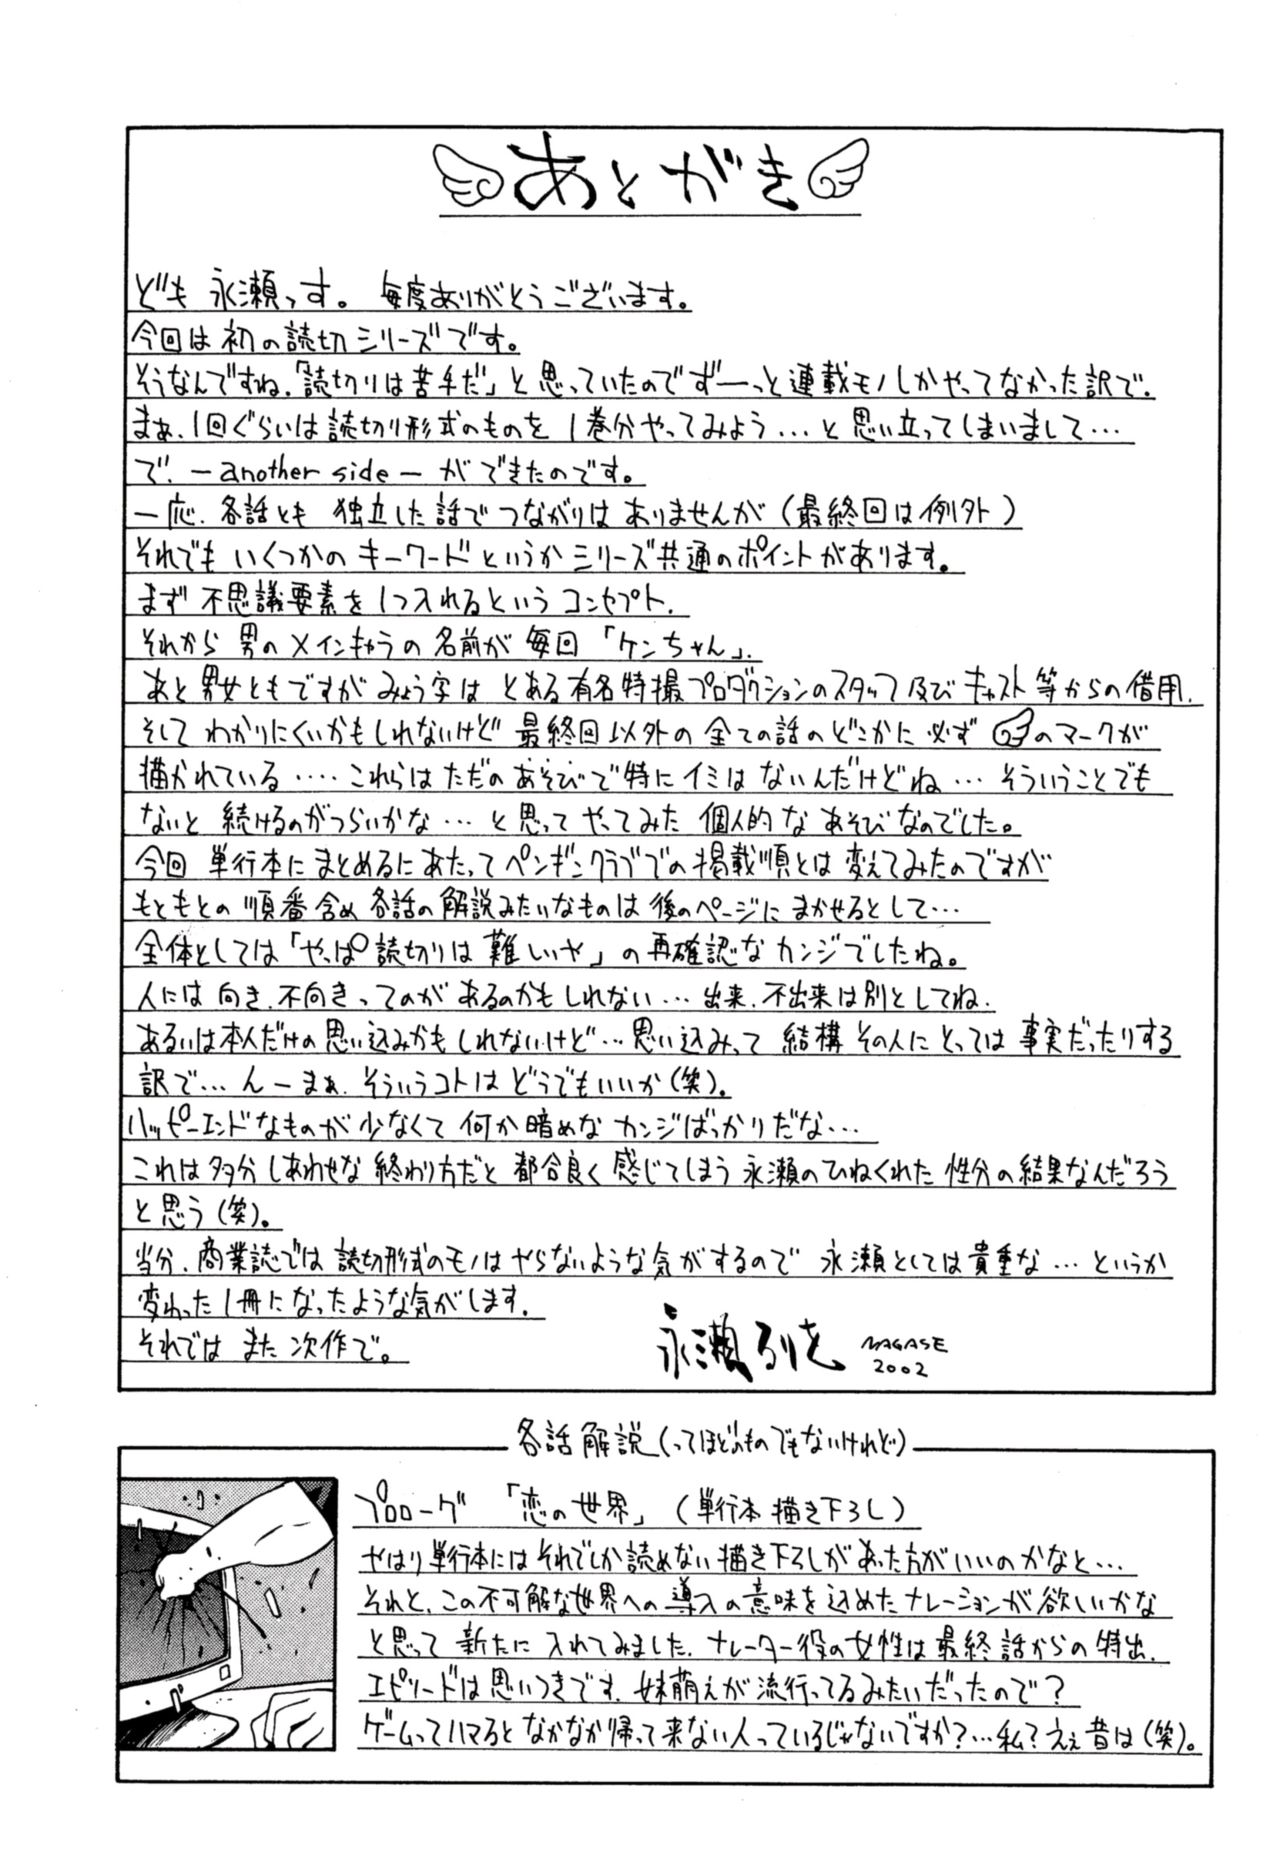 あとがき
ども 永瀬っす。 毎度ありがとうございます。
今回は初の読切シリーズです。
そうなんですね、「読切りは苦手だ」と思っていたのでずーっと連載モノしかやってなかった訳で。
まぁ、1回ぐらいは読切り形式のものを1巻分やってみよう…と思い立ってしまいまして…
で、—another side—ができたのです。
一応、各話とも 独立した話でつながりはありませんが(最終回は例外)
それでも いくつかの キーワードというかシリーズ共通のポイントがあります。
まず 不思議要素を1つ入れるという コンセプト、
それから 男のメインキャラの名前が 毎回 「ケンちゃん」、
あと男女ともですが みょう字は とある有名特撮プロダクションのスタッフ及び キャスト等からの借用、
そして わかりにくいかもしれないけど 最終回以外の 全ての話のどこかに 必ず のマークが
描かれている ‥‥ これらは ただの あそびで特に イミは ないんだけどね … そういうことでも
ないと 続けるのがつらいかな … と 思って やってみた 個人的な あそびなのでした。
今回 単行本に まとめるにあたって ペンギンクラブでの掲載順とは 変えてみたのですが
もともとの 順番含め 各話の解説みたいなものは 後のページに まかせるとして…
全体としては「やっぱ読切りは 難しいや」の 再確認な カンジでしたね。
人には 向き、不向きってのが あるのかもしれない … 出来、不出来は別としてね、
あるいは本人だけの思い込みかも しれないけど … 思い込みって 結構 その人にとっては 事実だったりする
訳で … んーまぁ、そういうコトは どうでもいいか(笑)。
ハッピーエンドなものが 少なくて 何か暗めな カンジばっかりだな…
これは 多分 しあわせな 終わり方だと 都合良く 感じてしまう 永瀬のひねくれた 性分の結果なんだろう
と思う(笑)。
当分、商業誌では 読切形式のモノは やらないような気がするので 永瀬としては貴重な … というか
変わった1冊になったような気がします、
それでは また 次作で。
永瀬るりを NAGASE
2002
各話解説(ってほどのものでもないけれど)
プロローグ 「恋の世界」 (単行本 描き下ろし)
やはり単行本には それでしか読めない描き下ろしがあった方がいいのかなと…
それと、この不可解な世界への導入の意味を込めたナレーションが欲しいかな
と思って 新たに 入れてみました、ナレーター役の女性は最終話からの特出、
エピソードは思いつきです、妹萌えが流行ってるみたいだったので?
ゲームってハマると なかなか帰って来ない人っているじゃないですか?…私?ええ昔は(笑)。